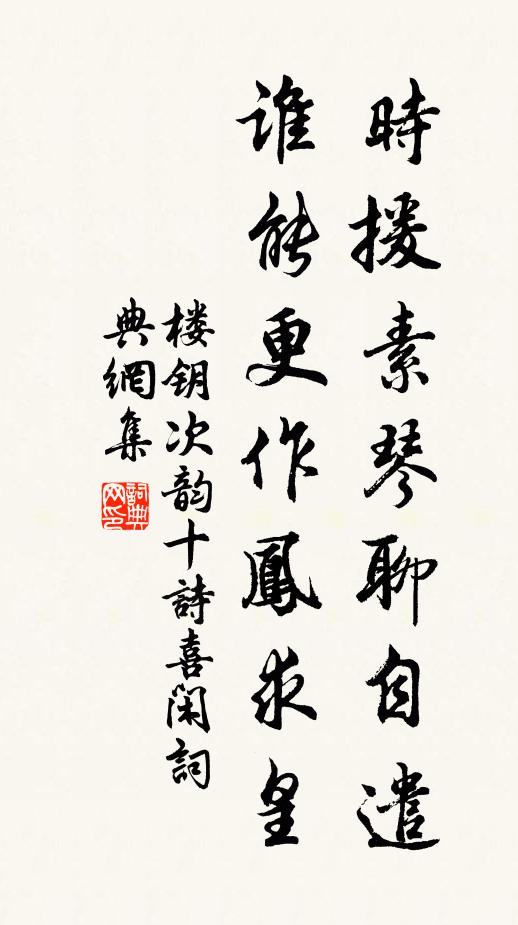 時援素琴聊自遣
谁能更作鳳求皇
楼钥次韵十詩喜闲詞
典網集
詞典
网印